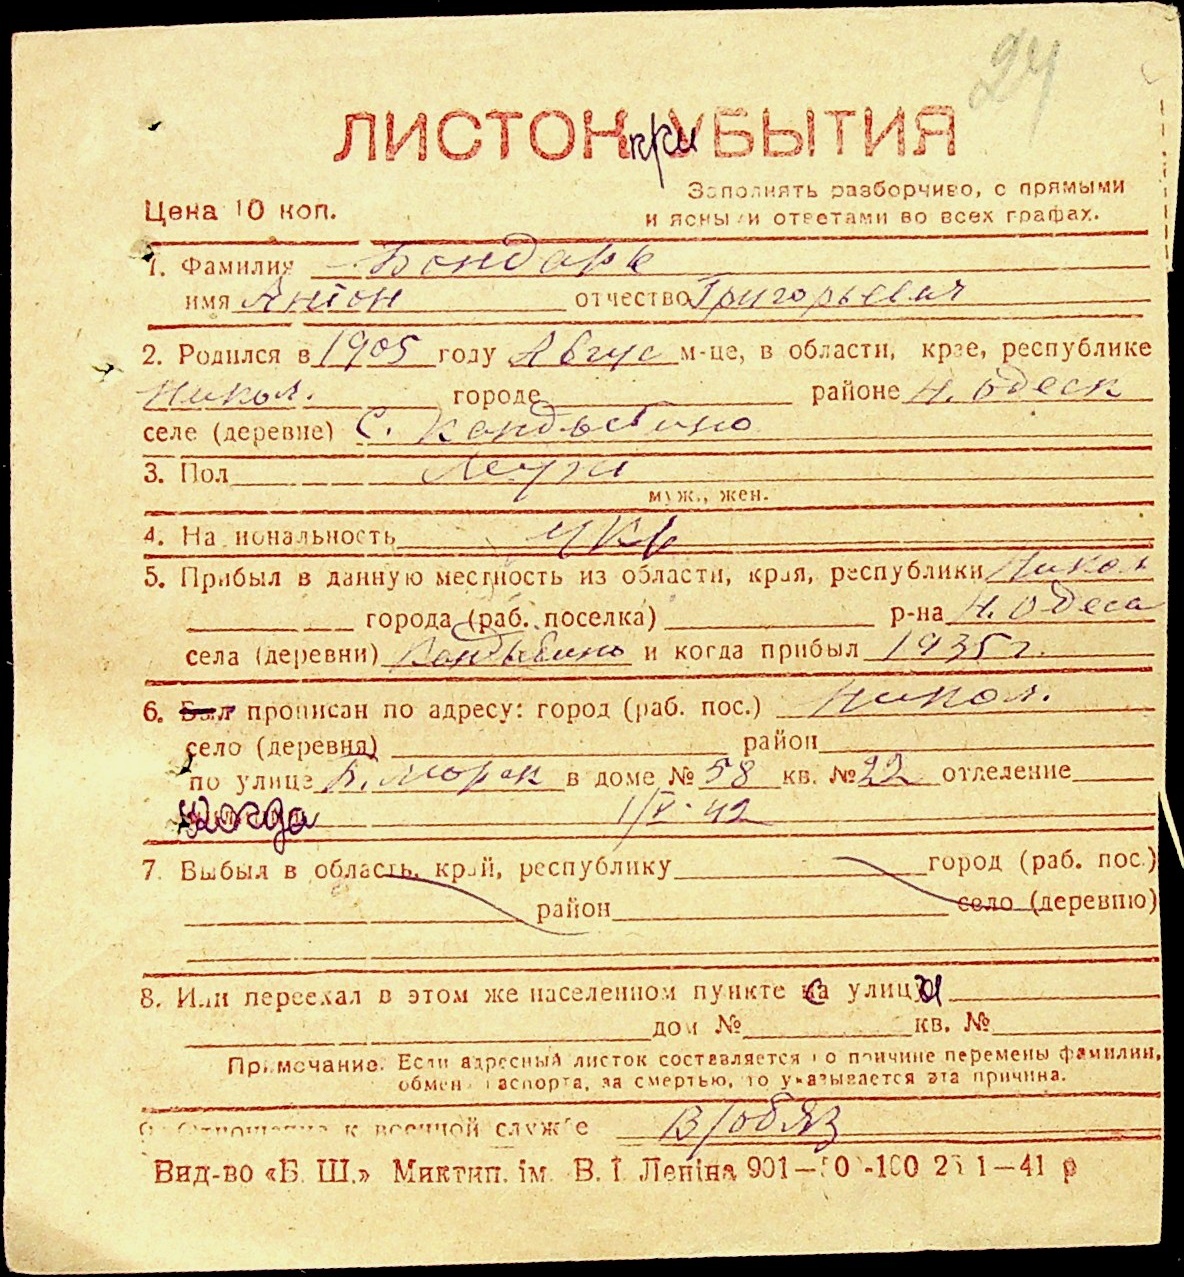 24
ЛИСТОК при УБЫТИЯ
Цена 10 коп.
Заполнять разборчиво, с прямыми
и ясными ответами во всех графах.
1. Фамилия Бондарь
имя Антон отчество Григорьевич
2. Родился в 1905 году Авгус м-це, в области, крае, республике
Никол. городе районе Н. Одесск
селе (деревне) С. Кандыбино
3. Пол Муж
муж., жен.
4. Национальность Укр
5. Прибыл в данную местность из области, края, республики Никол
города (раб. поселка) р-на Н. Одеса
села (деревни) Кандыбино и когда прибыл 1935 г.
6. Был прописан по адресу: город (раб. пос.) Никол.
село (деревня) район
по улице Б. Морск в доме № 58 кв. № 22 отделение
Когда 1/V-42
7. Выбыл в область, край, республику город (раб. пос.)
район село (деревню)
8. Или переехал в этом же населенном пункте са улицы
дом № кв. №
Примечание. Если адресный листок составляется по причине перемены фамилии,
обмена паспорта, за смертью, то указывается эта причина.
9. Отношение к военной службе В/обяз
Вид-во «Б. Ш.» Миктип. ім. В. І. Леніна 901—